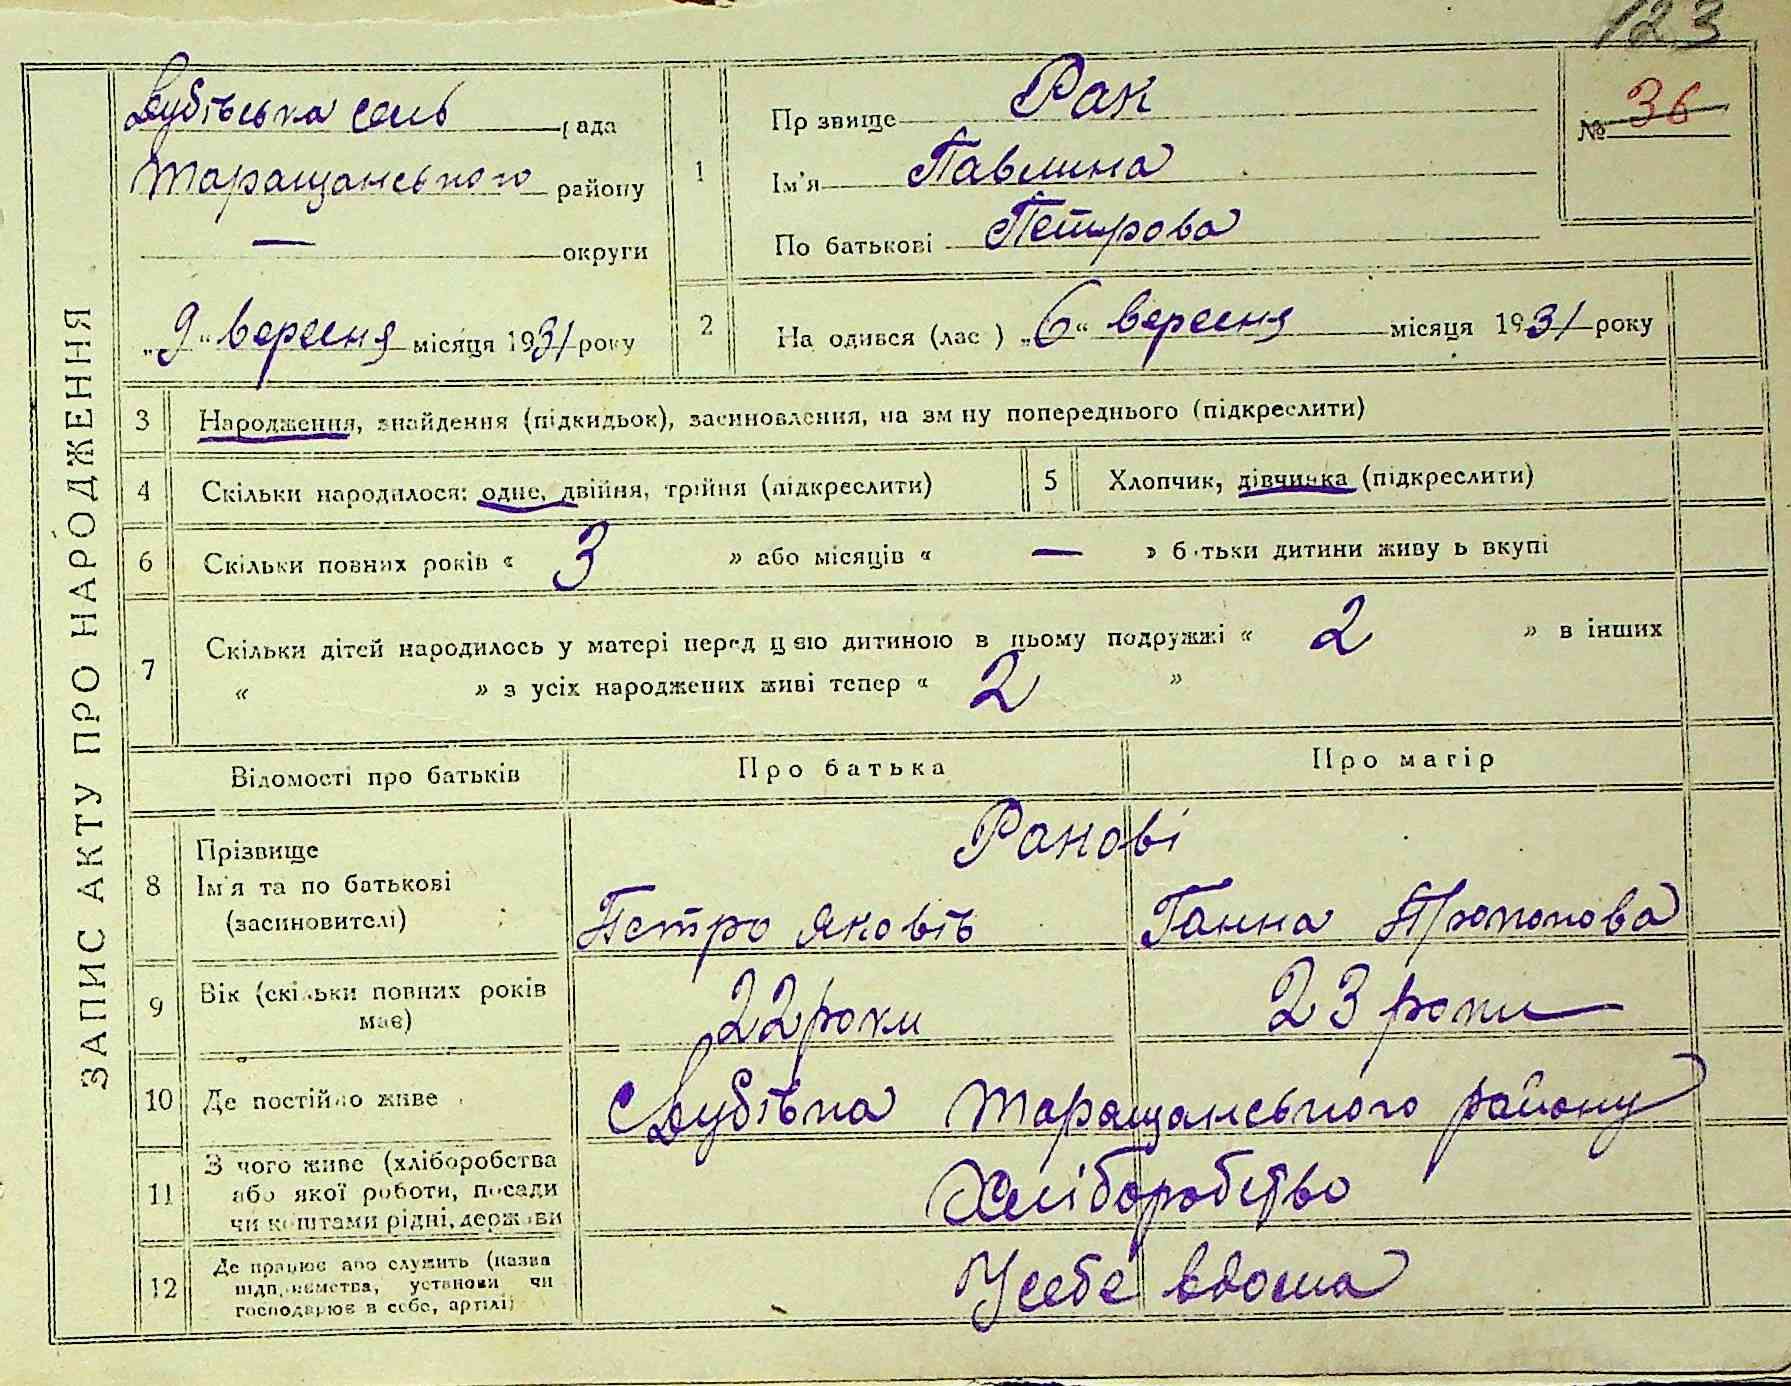 123
ЗАПИС АКТУ ПРО НАРОДЖЕННЯ
Дубівська сель рада
Таращанського району
— округи
„9“ вересня місяця 1931 року
1
Прзвище Рак
Ім'я Павлина
По батькові Петрова
№ 36
2
На одився (лас ) „6“ вересня місяця 1931 року
3 Народження, знайдення (підкидьок), засиновлення, на зм ну попереднього (підкреслити)
4 Скільки народилося: одне, двійня, трійня (підкреслити)
5 Хлопчик, дівчинка (підкреслити)
6 Скільки повних років « 3 » або місяців « — » б тьки дитини живу ь вкупі
7 Скільки дітей народилось у матері перед цією дитиною в цьому подружжі « 2 » в інших
« » з усіх народжених живі тепер « 2 »
Відомості про батьків Про батька Про матір
8 Прізвище Ракові
Ім'я та по батькові
(засиновителі) Петро Яковів Ганна Прокопова
9 Вік (скільки повних років
має) 22 роки 23 роки
10 Де постійно живе с Дубівка Таращанського району
11 З чого живе (хліборобства
або якої роботи, посади
чи коштами рідні, держави Хліборобство
12 Де працює або служить (назва
підприємства, установи чи
господарює в себе, артілі) У себе вдома